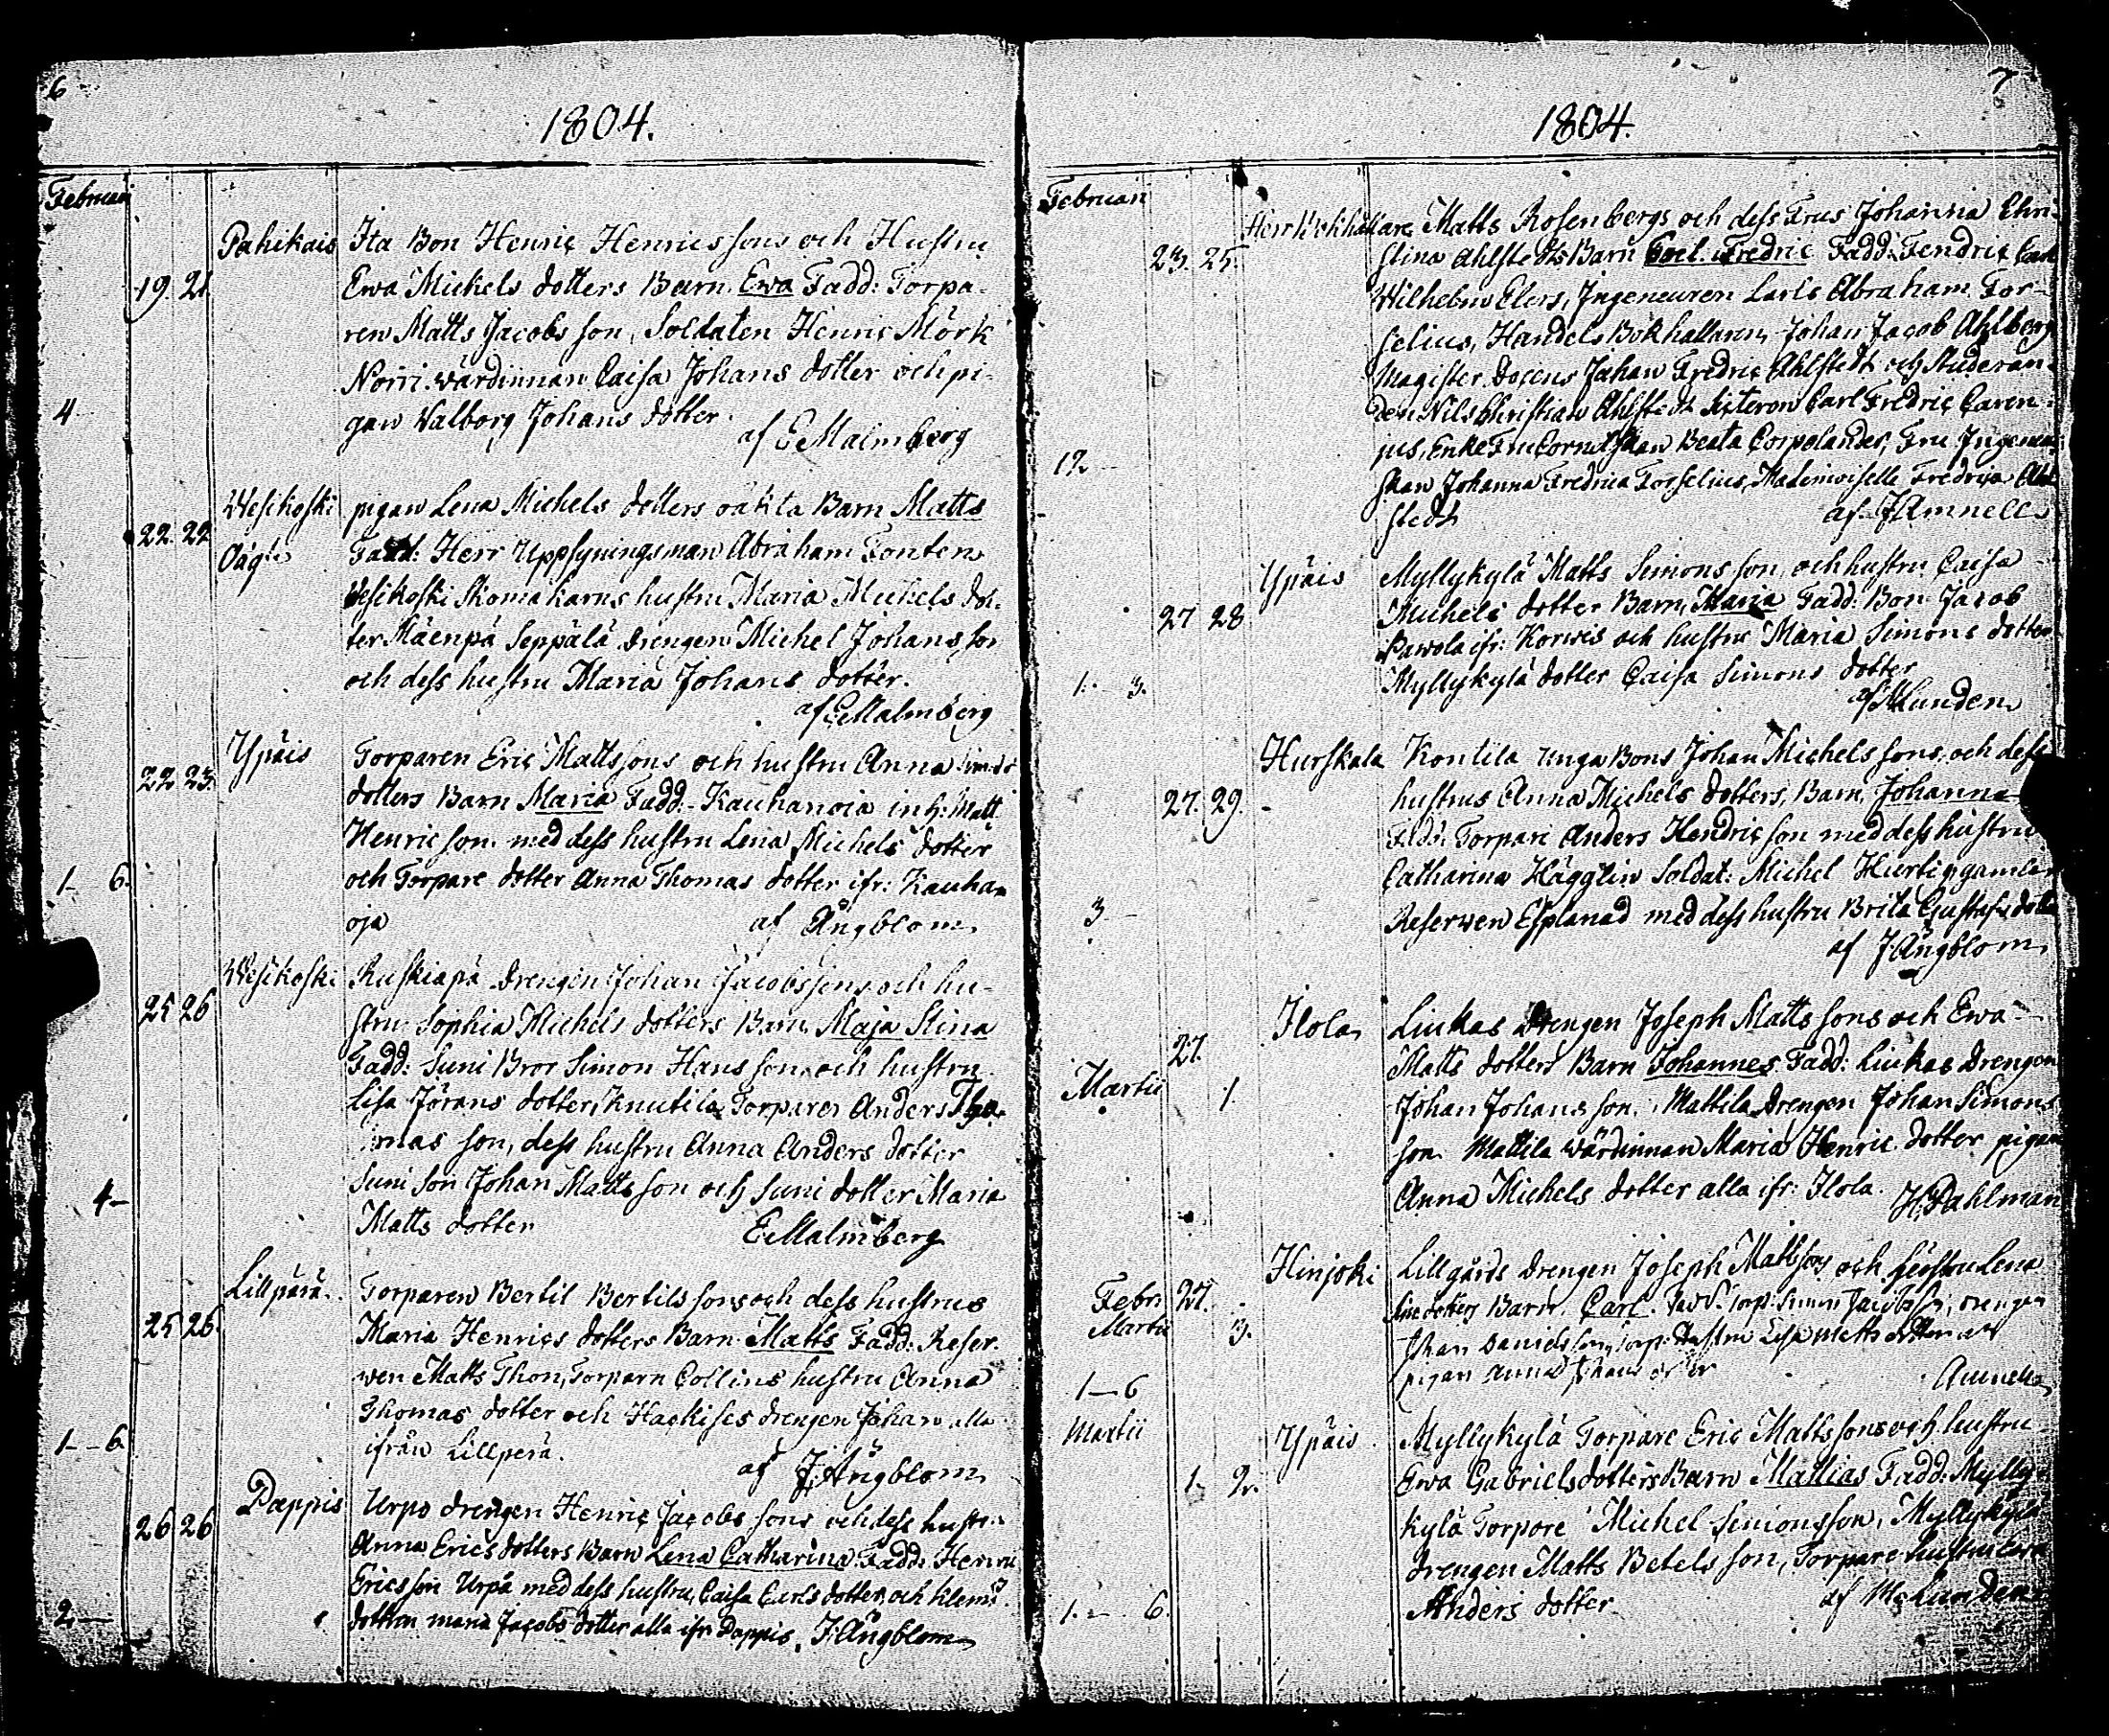 6
1804.
Februari
Pahikais Ita Bon Henric Henrics sons och Hustru
19. 21 Ewa Michels dotters Barn. Ewa Fadd: Torpa-
ren Matts Jacobs son, Soldaten Henric Mörk
Norri wärdinnan Caisa Johans dotter och pi-
4 gan Walborg Johans dotter.
af E Malmberg
Wesikoski pigan Lena Michels dotters oäkta Barn Matts
22. 22 Oägt: Fadd: Herr Uppsyningsman Abraham Fonten
Wesikoski Skomakarns hustru Maria Michels dot-
ter Mäenpä Seppälä drengen Michel Johans son
och dess hustru Maria Johans dotter.
af E Malmberg
Ypäis Torparen Eric Mattssons och hustru Anna
22 23. dotters Barn Maria Fadd: Kauhanoia inh: Matt
Henric son med dess hustru Lena Michels dotter
1- 6. och Torpare dotter Anna Thomas dotter ifr: Kauhan
oja af Ångblom
Wesikoski Ruskiapä drengen Johan Jacobssons och hu-
25 26 stru Sophia Michels dotters Barn Maja Stina
Fadd: Suni Bror Simon Hans son och hustru
Lisa Jörans dotter, Knutila Torparen Anders Tho-
mas son, dess hustru Anna Anders dotter
4- Suni Son Johan Matts son och Suni dotter Maria
Matts dotter E Malmberg
Lillpärä. Torparen Bertil Bertils sons och dess hustrus
25 26. Maria Henrics dotters Barn Matts Fadd: Reser-
wen Matts Thon, Torparn Collins hustru Anna
Thomas dotter och Hackises drengen Johan alla
1--6. ifrån Lillperä.
af J: Ångblom
Pappis Urpo drengen Henric Jacobs sons och dess hustru
26 26 Anna Erics dotters Barn Lena Catharina Fadd: Henric
Ericsson Urpå med dess hustru, Caisa Carls dotter, och Klemis
2-- dottren Maria Jacobs dotter alla ifr Pappis. J: Ångblom
7
1804.
Februari
Herr Bokhållare Matts Rosenbergs och dess Frus Johanna Chri-
23. 25. stina Ahlstedts Barn Carl Fredric Fadd: Fendric Carl
Wilhelm Elers, Ingeneuren Carls Abraham For-
selius, Handels Bokhallaren Johan Jacob Ahlberg
Magister Docens Johan Fredric Ahlstedt och Studeran-
den Nils Christian Ahlstedt Secteron Carl Fredric Caren-
12 -- jus, Enke Fru Beata Corpolander, Fru Ingeneur-
skan Johanna Fredrica Forselius, Mademoiselle Fredrica Ahl-
stedt af J Amnell
Ypäis Myllykylä Matts Simons son, och hustru Caisa
27 28 Michels dotter Barn, Maria Fadd: Bon Jacob
Pawola ifr: Korwis och hustru Maria Simons dotter
1. 3. Myllykylä dotter Caisa Simons dotter
af M Lunden
Hurskala Kontila unga Bons Johan Michels sons, och dess
27. 29. hustrus Anna Michels dotters, Barn, Johanna
Fadd: Torpare Anders Hendric son med dess hustru
Catharina Hägglin Soldat: Michel Hurtig gamla
3 - Reserwen Esplanad med dess hustru Brita Gustafs dotter
af J: Ångblom
Ilola Liukas Drengen Joseph Matts sons och Ewa
27. Matts dotters Barn Johannes Fadd: Liukas Drengen
Martii 1. Johan Johans son, Mattila Drengen Johan Simons
son Mattila wärdinnan Maria Henric dotter pigan
Anna Michels dotter alla ifr: Ilola. H: Pahlman
Hinjoki Lillgårds Drengen Joseph Mattssons och hustru Lena
Febr. 27. dotters Barn. Carl. Fadd: Torp: Simon Jacobsson, drengen
Martii 3. Johan Daniels son, Torp: Hustru Lisa Matts dotter och
1-6 pigan Anna Johans dotter Amnell
Martii
Ypäis Myllykylä Torpare Eric Mattssons och hustru
1. 2. Ewa Gabriels dotters Barn Mattias Fadd: Mylly-
kylä Torpare Michel Simonsson, Myllykylä
drengen Matts Betels son, Torpare hustru
1. - 6. Anders dotter af M: Lunden